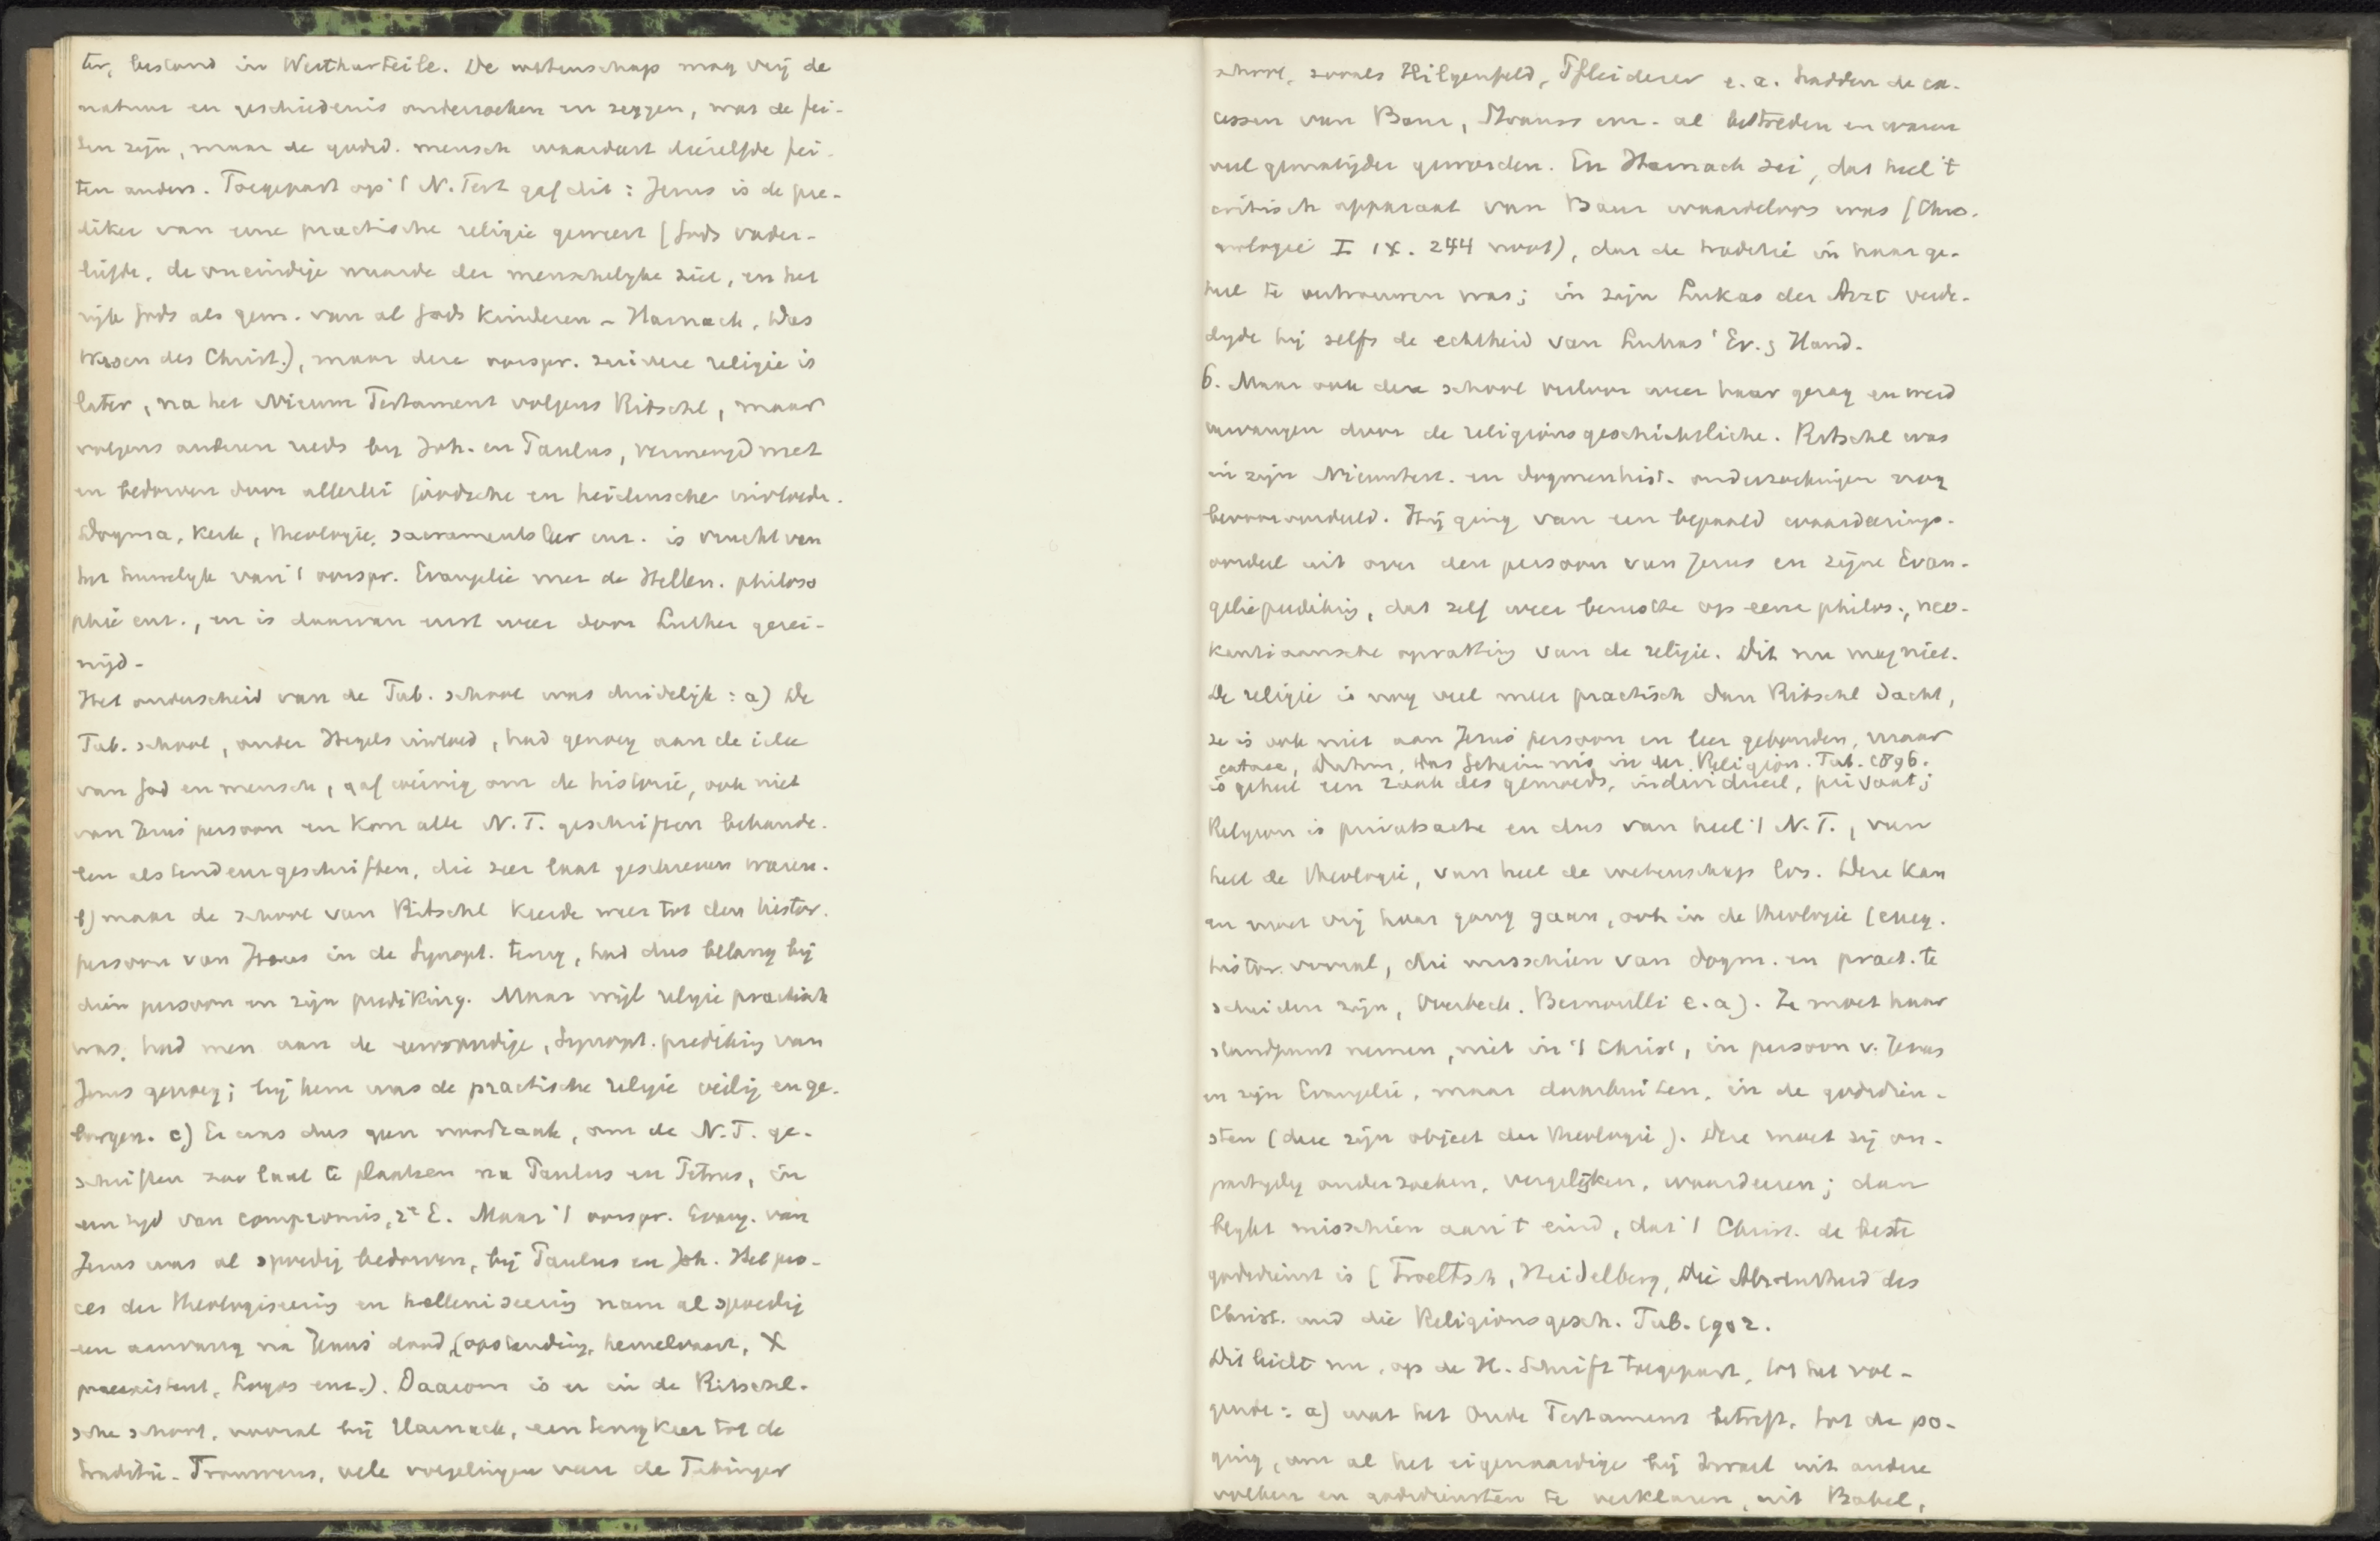 ter, bestond in Werthurteile. De wetenschap mag vrij de
natuur en geschiedenis onderzoeken en zeggen, wat de fei-
ten zijn, maar de godsd. mensch waardeert diezelfde fei-
ten anders. Toegepast op 't N. Test gaf dit: Jezus is de pre-
diker van eene practische religie geweest (Gods vader-
liefde, de oneindige waarde der menschelijke ziel, en het
rijk Gods als gem. van al Gods kinderen - Harnack, Das
Wesen des Christ.), maar deze oorspr. zuivere religie is
later, na het Nieuwe Testament volgens Ritschl, maar
volgens anderen reeds bij Joh. en Paulus, vermengd met
en bedorven door allerlei joodsche en heidensche invloeden.
Dogma, Kerk, theologie, sacramentsleer enz. is vrucht van
het huwelijk van 't oorspr. Evangelie met de Hellen. philoso
phie enz., en is daarvan eerst weer door Luther gerei-
nigd-
Het onderscheid van de Tub. school was duidelijk: a) De
Tub. school, onder Hegels invloed, had genoeg aan de idee
van God en mensch, gaf weinig om de historie, ook niet
van Jezus' persoon en kon alle N. T. geschriften behande-
len als tendenzgeschriften, die zeer laat geschreven waren.
b) maar de school van Ritschl keerde weer tot den histor.
persoon van Jezus in de Synopt. terug, had dus belang bij
dien persoon en zijn prediking. Maar wijl religie practisch
was, had men aan de eenvoudige, Synopt. prediking van
Jezus genoeg; bij hem was de practische religie veilig en ge-
borgen. c) Er was dus geen noodzaak, om de N. T. ge-
schriften zoo laat te plaatsen na Paulus en Petrus, in
een tijd van compromis, 2e E. Maar 't oorspr. Evang. van
Jezus was al spoedig bedorven, bij Paulus en Joh. Het pro-
ces der theologiseering en helleniseering nam al spoedig
een aanvang na Jezus' dood, (opstanding, hemelvaart, X
praeexistent, Logos enz.). Daarom is er in de Ritschl-
sche school, vooral bij Harnack, een terugkeer tot de
traditie. Trouwens, vele volgelingen van de Tubinger
school, zooals Hilgenfeld, Pfleiderer e. a. hadden de ex-
cessen van Baur, Strauss enz. al bestreden en waren
veel gematigder geworden. En Harnack zei, dat heel 't
critisch apparaat van Baur waardeloos was (Chro-
nologie I IX. 244 noot), dat de traditie in haar ge-
heel te vertrouwen was; in zijn Lukas der Arzt verde-
digde hij zelfs de echtheid van Lukas' Ev. & Hand.
6. Maar ook deze school verloor weer haar gezag en werd
vervangen door de religionsgeschichtliche. Ritschl was
in zijn Nieuwtest. en dogmenhist. onderzoekingen nog
bevooroordeeld. Hij ging van een bepaald waardeerings-
oordeel uit over den persoon van Jezus en zijne Evan-
gelieprediking, dat zelf weer berustte op eene philos., neo-
kantiaansche opvatting van de religie. Dit nu mag niet.
De religie is nog veel meer practisch dan Ritschl dacht,
ze is ook niet aan Jezus' persoon en leer gebonden, maar
extase, Duhm, Das Geheimnis in der Religion. Tub. 1896.
is geheel een zaak des gemoeds, individueel, privaat;
Religion is privatsache en dus van heel 't N. T., van
heel de theologie, van heel de wetenschap los. Deze kan
en moet vrij haar gang gaan, ook in de theologie (exeg.
histor. vooral, die misschien van dogm. en pract. te
scheiden zijn, Overbeck. Bernoulli e. a). Ze moet haar
standpunt nemen, niet in 't Christ, in persoon v. Jezus
en zijn Evangelie, maar daarbuiten, in de godsdien-
sten (deze zijn object der theologie). Deze moet zij on-
partijdig onderzoeken, vergelijken, waardeeren; dan
blijkt misschien aan 't eind, dat 't Christ. de beste
godsdienst is (Troeltsch, Heidelberg, Die Absolutheid des
Christ. und die Religionsgesch. Tub. 1902.
Dit leidt nu, op de H. Schrift toegepast, tot het vol-
gende: a) wat het Oude Testament betreft, tot de po-
ging, om al het eigenaardige bij Israel uit andere
volken en godsdiensten te verklaren, uit Babel,